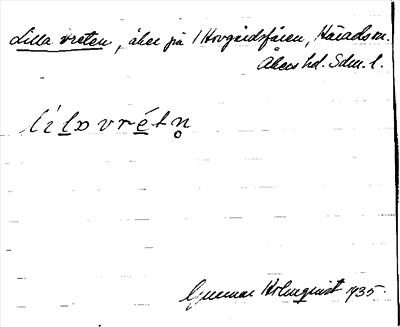 Lilla vreten, åker på 1 Hovgårdsfären, Häradsm.
Åkers hd. Sdm. l.
lílla vrétn̥
Gunnar Holmquist 1935.